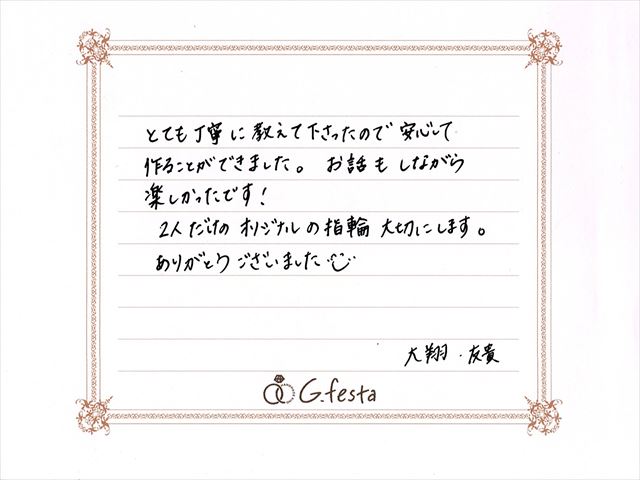 とても丁寧に教えて下さったので安心して
作ることができました。お話もしながら
楽しかったです!
2人だけのオリジナルの指輪大切にします。
ありがとうございました
大翔・友貴
G.festa